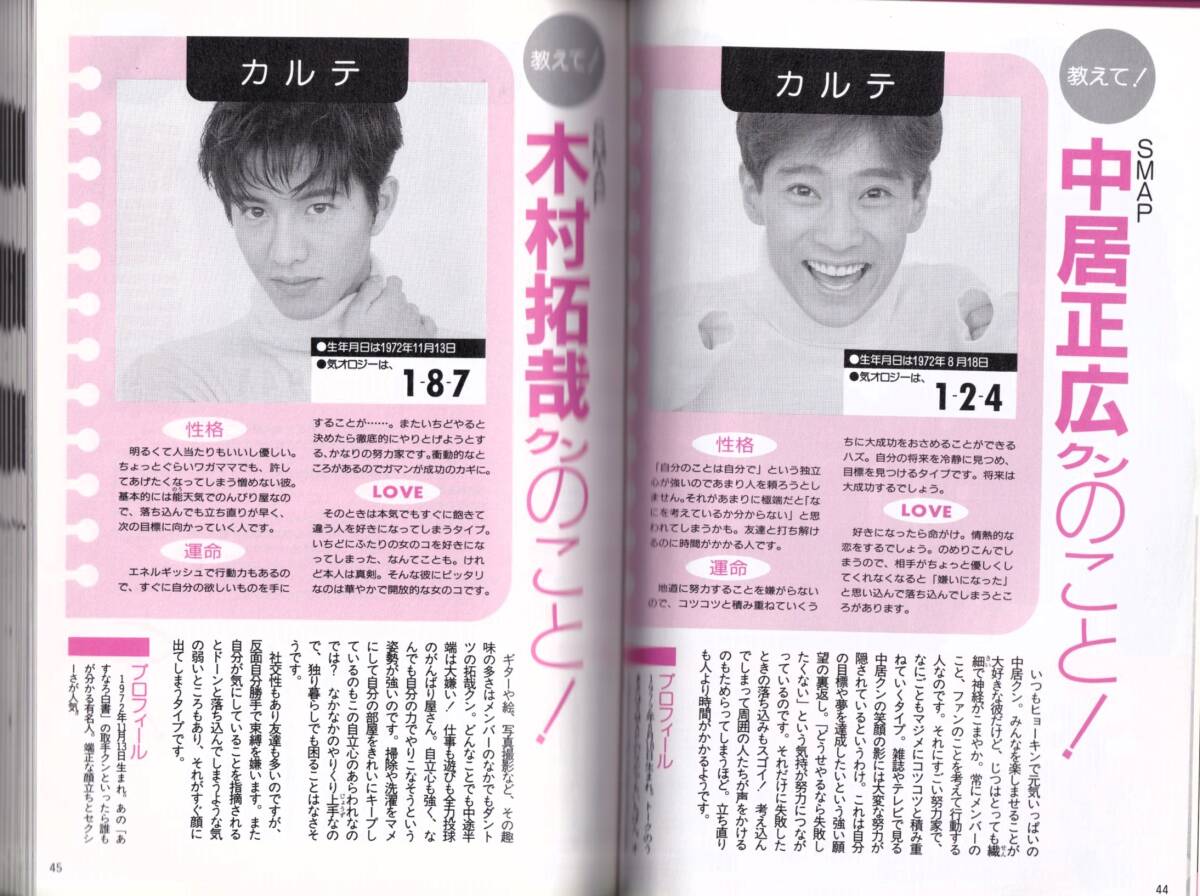 教えて!
SMAP
中居正広クンのこと!
カルテ
●生年月日は1972年8月18日
●気オロジーは、
1-2-4
性格
「自分のことは自分で」という独立
心が強いのであまり人を頼ろうとし
ません。それがあまりに極端だと「な
にを考えているか分からない」と思
われてしまうかも。友達と打ち解け
るのに時間がかかる人です。
運命
地道に努力することを嫌がらない
ので、コツコツと積み重ねていくう
ちに大成功をおさめることができる
ハズ。自分の将来を冷静に見つめ、
目標を見つけるタイプです。将来は
大成功するでしょう。
LOVE
好きになったら命がけ。情熱的な
恋をするでしょう。のめりこんでし
まうので、相手がちょっと優しくし
てくれなくなると「嫌いになった」
と思い込んで落ち込んでしまうとこ
ろがあります。
いつもヒョーキンで元気いっぱいの
中居クン。みんなを楽しませることが
大好きな彼だけど、じつはとっても繊
細で神経がこまやか。常にメンバーの
こと、ファンのことを考えて行動する
人なのです。それにすごい努力家で、
なにごともマジメにコツコツと積み重
ねていくタイプ。雑誌やテレビで見る
中居クンの笑顔の影には大変な努力が
隠されているというわけ。これは自分
の目標や夢を達成したいという強い願
望の裏返し。「どうせやるなら失敗し
たくない」という気持が努力につなが
っているのです。それだけに失敗した
ときの落ち込みもスゴイ! 考え込ん
でしまって周囲の人たちが声をかける
のもためらってしまうほど。立ち直り
も人より時間がかかるようです。
プロフィール
44
教えて!
木村拓哉クンのこと!
カルテ
●生年月日は1972年11月13日
●気オロジーは、
1-8-7
性格
明るくて人当たりもいいし優しい。
ちょっとぐらいワガママでも、許し
てあげたくなってしまう憎めない彼。
基本的には能天気でのんびり屋なの
で、落ち込んでも立ち直りが早く、
次の目標に向かっていく人です。
運命
エネルギッシュで行動力もあるの
で、すぐに自分の欲しいものを手に
することが……。またいちどやると
決めたら徹底的にやりとげようとす
る、かなりの努力家です。衝動的なと
ころがあるのでガマンが成功のカギに。
LOVE
そのときは本気でもすぐに飽きて
違う人を好きになってしまうタイプ。
いちどにふたりの女のコを好きにな
ってしまった、なんてことも。けれ
ど本人は真剣。そんな彼にピッタリ
なのは華やかで開放的な女のコです。
ギターや絵、写真撮影など、その趣
味の多さはメンバーのなかでもダント
ツの拓哉クン。どんなことでも中途半
端は大嫌い! 仕事も遊びも全力投球
のがんばり屋さん。自立心も強く、な
んでも自分の力でやりこなそうという
姿勢が強いのです。掃除や洗濯をマメ
にして自分の部屋をきれいにキープし
ているのもこの自立心のあらわれなの
では? なかなかのやりくり上手なの
で、独り暮らしでも困ることはなさそ
うです。
社交性もあり友達も多いのですが、
反面自分勝手で束縛を嫌います。また
自分が気にしていることを指摘される
とドーンと落ち込んでしまうような気
の弱いところもあり、それがすぐ顔に
出てしまうタイプです。
プロフィール
1972年11月13日生まれ。あの「あ
すなろ白書」の取手クンといったら誰も
が分かる有名人。端正な顔立ちとセクシ
ーさが人気。
45